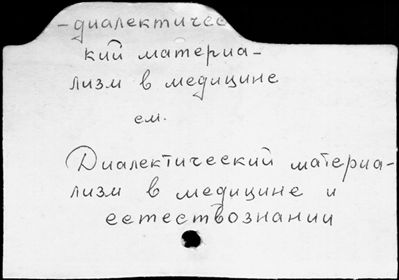 -диалектичес
кий материа-
лизм в медицине
см.
Диалектический материа-
лизм в медицине и
естествознании